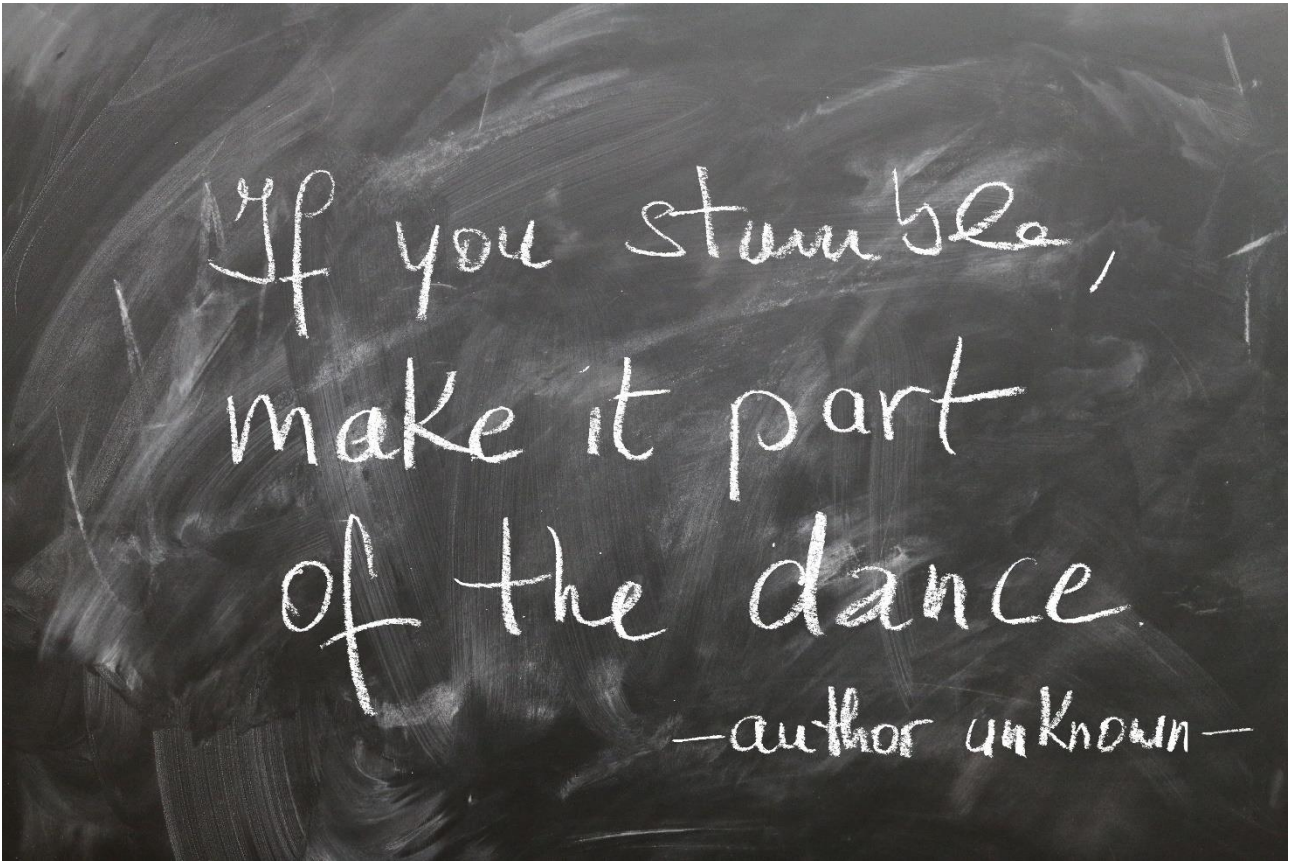 If you stumble,
make it part
of the dance.
—author unknown—